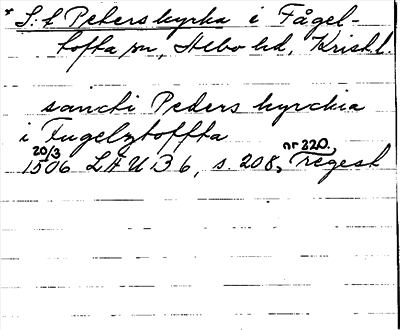 * S:t Peters kyrka i Fågel-
tofta sn, Albo hd, Krist l.
sancti Peders kyrckia
i Fugelztoffta
20/3 1506 LAUB 6, s. 208, nr 220, regest